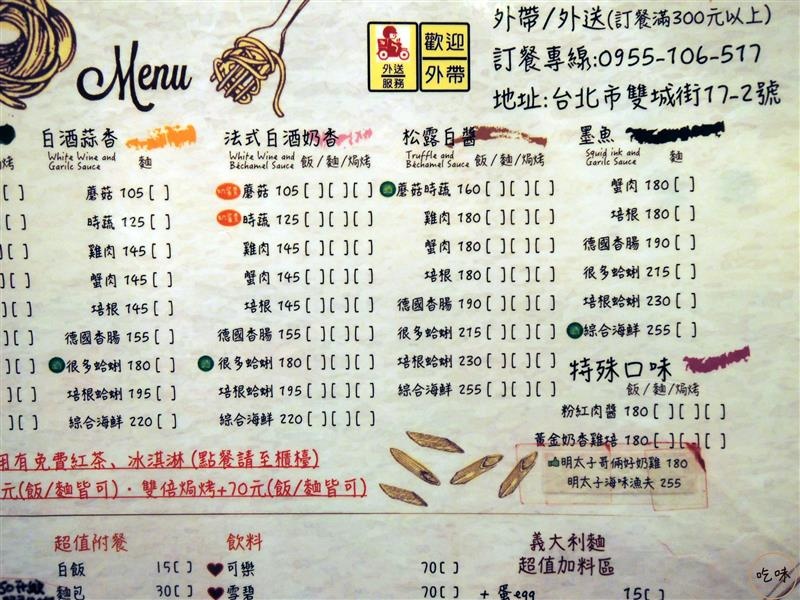 Menu
外送
服務
歡迎
外帶
外帶/外送(訂餐滿300元以上)
訂餐專線:0955-106-517
地址:台北市雙城街17-2號
白酒蒜香
White Wine and
Garlic Sauce
麵
蘑菇 105 [ ]
時蔬 125 [ ]
雞肉 145 [ ]
蟹肉 145 [ ]
培根 145 [ ]
德國香腸 155 [ ]
很多蛤蜊 180 [ ]
培根蛤蜊 195 [ ]
綜合海鮮 220 [ ]
法式白酒奶香
White Wine and
Bèchamel Sauce
飯/麵/焗烤
蘑菇 105 [ ] [ ] [ ]
時蔬 125 [ ] [ ] [ ]
雞肉 145 [ ] [ ] [ ]
蟹肉 145 [ ] [ ] [ ]
培根 145 [ ] [ ] [ ]
德國香腸 155 [ ] [ ] [ ]
很多蛤蜊 180 [ ] [ ] [ ]
培根蛤蜊 195 [ ] [ ] [ ]
綜合海鮮 220 [ ] [ ] [ ]
松露白醬
Truffle and
Bèchamel Sauce
飯/麵/焗烤
蘑菇時蔬 160 [ ] [ ] [ ]
雞肉 180 [ ] [ ] [ ]
蟹肉 180 [ ] [ ] [ ]
培根 180 [ ] [ ] [ ]
德國香腸 190 [ ] [ ] [ ]
很多蛤蜊 215 [ ] [ ] [ ]
培根蛤蜊 230 [ ] [ ] [ ]
綜合海鮮 255 [ ] [ ] [ ]
墨魚
Squid ink and
Garlic Sauce
麵
蟹肉 180 [ ]
培根 180 [ ]
德國香腸 190 [ ]
很多蛤蜊 215 [ ]
培根蛤蜊 230 [ ]
綜合海鮮 255 [ ]
特殊口味
飯/麵/焗烤
粉紅肉醬 180 [ ] [ ] [ ]
黃金奶香雞培 180 [ ] [ ] [ ]
明太子哥倆好奶雞 180
明太子海味漁夫 255
用有免費紅茶、冰淇淋 (點餐請至櫃檯)
元(飯/麵皆可)·雙倍焗烤+70元(飯/麵皆可)
超值附餐
白飯 15 [ ]
麵包 30 [ ]
飲料
可樂 70 [ ]
雪碧 70 [ ]
義大利麵
超值加料區
+ 蛋egg 15 [ ]
吃味